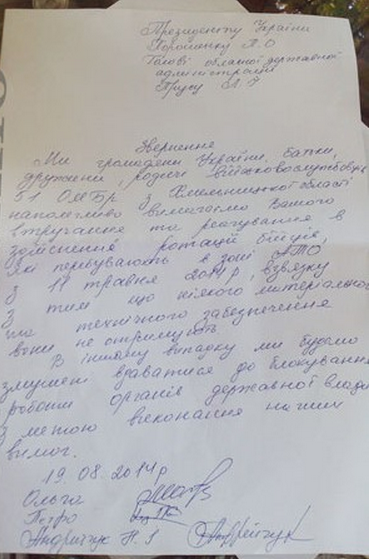 Президенту України
Порошенку П.О
Голові обласної державної
адміністрації
Прусу Л.
Звернення
Ми громадяни України, батьки,
дружини, родичі військовослужбовців
51 ОМБр з Хмельницької області
наполегливо вимагаємо Вашого
втручання та реагування в
здійснення ротацій бійців,
які перебувають в зоні АТО
з 17 травня 2014р, взвязку
з тим що ніякого матеріального
та технічного забезпечення
вони не отримують
В іншому випадку ми будемо
змушені вдаватися до блокування
роботи органів державної влади
з метою виконання наших
вимог.
19.08.2014р
Ольга
Петро
Андрійчук Н.